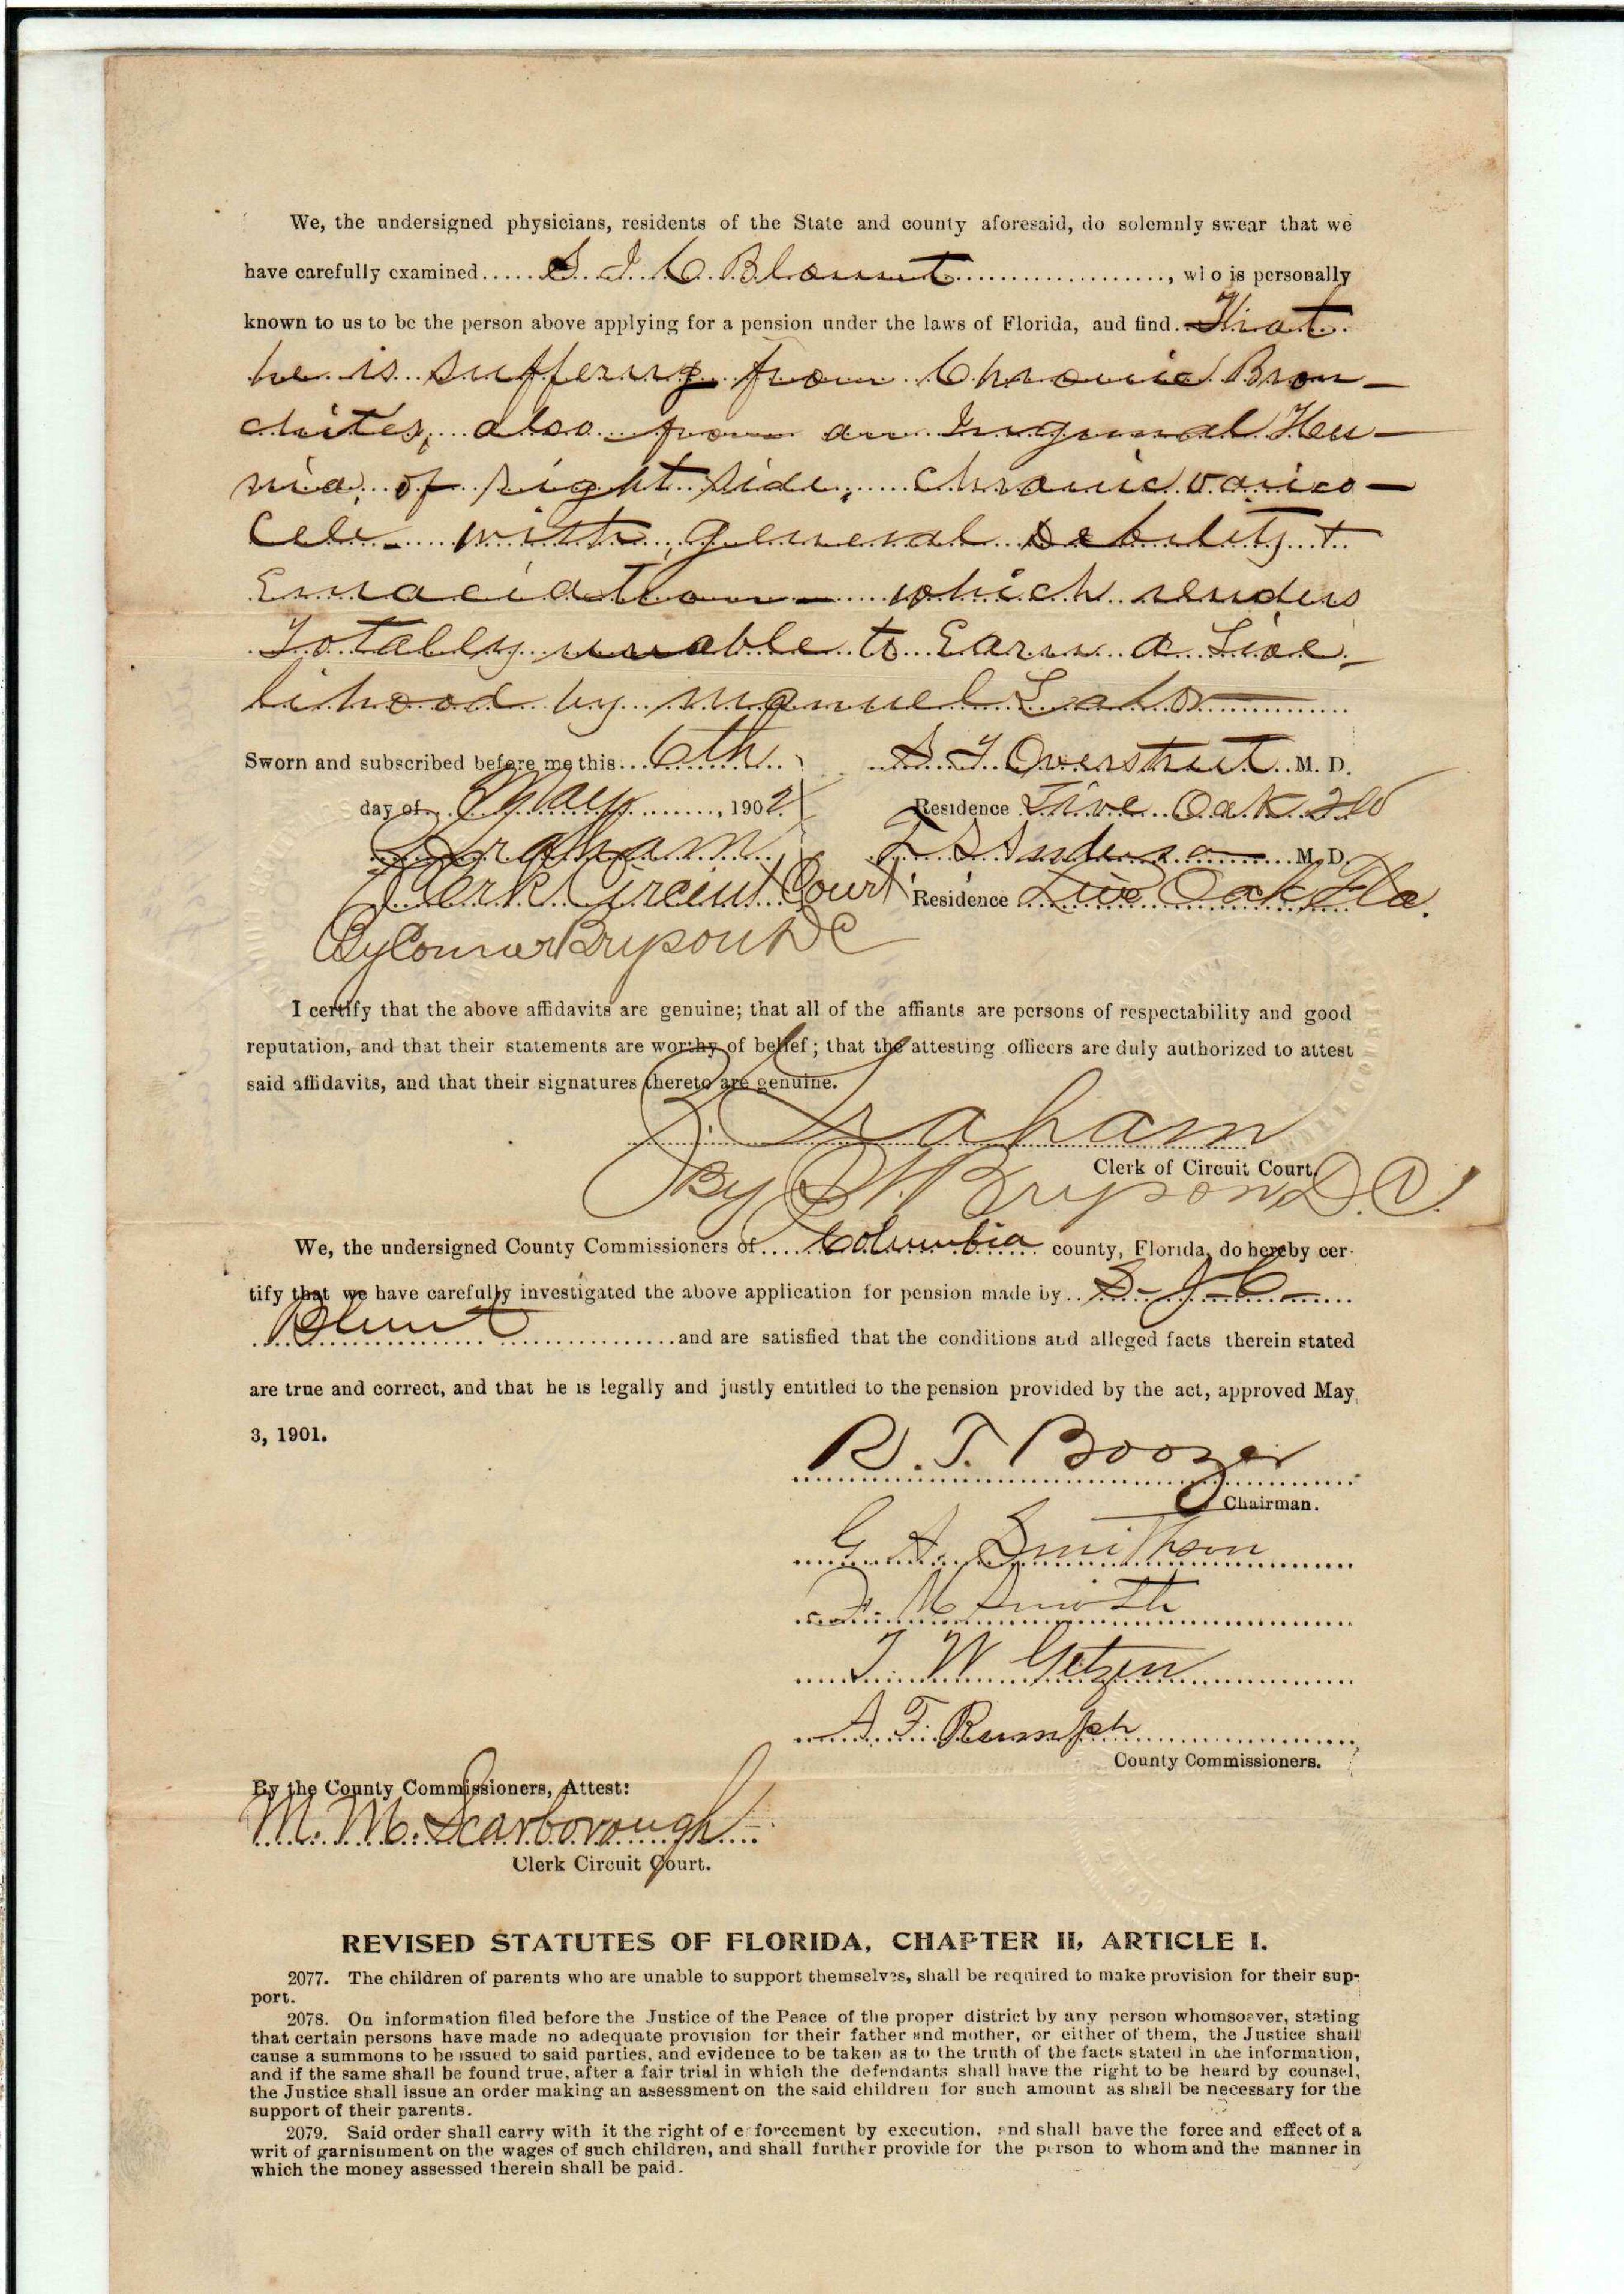 We, the undersigned physicians, residents of the State and county aforesaid, do solemnly swear that we
have carefully examined S. J. C. Blount, who is personally
known to us to be the person above applying for a pension under the laws of Florida, and find. That
he is suffering from Chronic Bron-
chites, also from an Inguinal Her-
nia of right side, chronic varico-
cele - with general Debility +
Emaciation - which renders
Totally unable to Earn a Live-
lihood by manuel Labor
Sworn and subscribed before me this 6th
S T Overstreet M. D.
day of May, 1902.
Residence Live Oak Fla
Graham
M. D.
Clerk Circuit Court
Residence Live Oak Fla.
By Conner Bryson DC
I certify that the above affidavits are genuine; that all of the affiants are persons of respectability and good
reputation, and that their statements are worthy of belief; that the attesting officers are duly authorized to attest
said affidavits, and that their signatures thereto are genuine.
Graham
Clerk of Circuit Court.
By Bryson D.C.
We, the undersigned County Commissioners of Columbia county, Florida, do hereby cer-
tify that we have carefully investigated the above application for pension made by S-J-C-
Blunt and are satisfied that the conditions and alleged facts therein stated
are true and correct, and that he is legally and justly entitled to the pension provided by the act, approved May
3, 1901.
R. T. Boozer
Chairman.
G. A. Smithson
F. M Smith
T. W. Getzen
A. F. Rumph
County Commissioners.
By the County Commissioners, Attest:
M. M. Scarborough
Clerk Circuit Court.
REVISED STATUTES OF FLORIDA, CHAPTER II, ARTICLE I.
2077. The children of parents who are unable to support themselves, shall be required to make provision for their sup-
port.
2078. On information filed before the Justice of the Peace of the proper district by any person whomsoever, stating
that certain persons have made no adequate provision for their father and mother, or either of them, the Justice shall
cause a summons to be issued to said parties, and evidence to be taken as to the truth of the facts stated in the information,
and if the same shall be found true, after a fair trial in which the defendants shall have the right to be heard by counsel,
the Justice shall issue an order making an assessment on the said children for such amount as shall be necessary for the
support of their parents.
2079. Said order shall carry with it the right of enforcement by execution, and shall have the force and effect of a
writ of garnishment on the wages of such children, and shall further provide for the person to whom and the manner in
which the money assessed therein shall be paid.